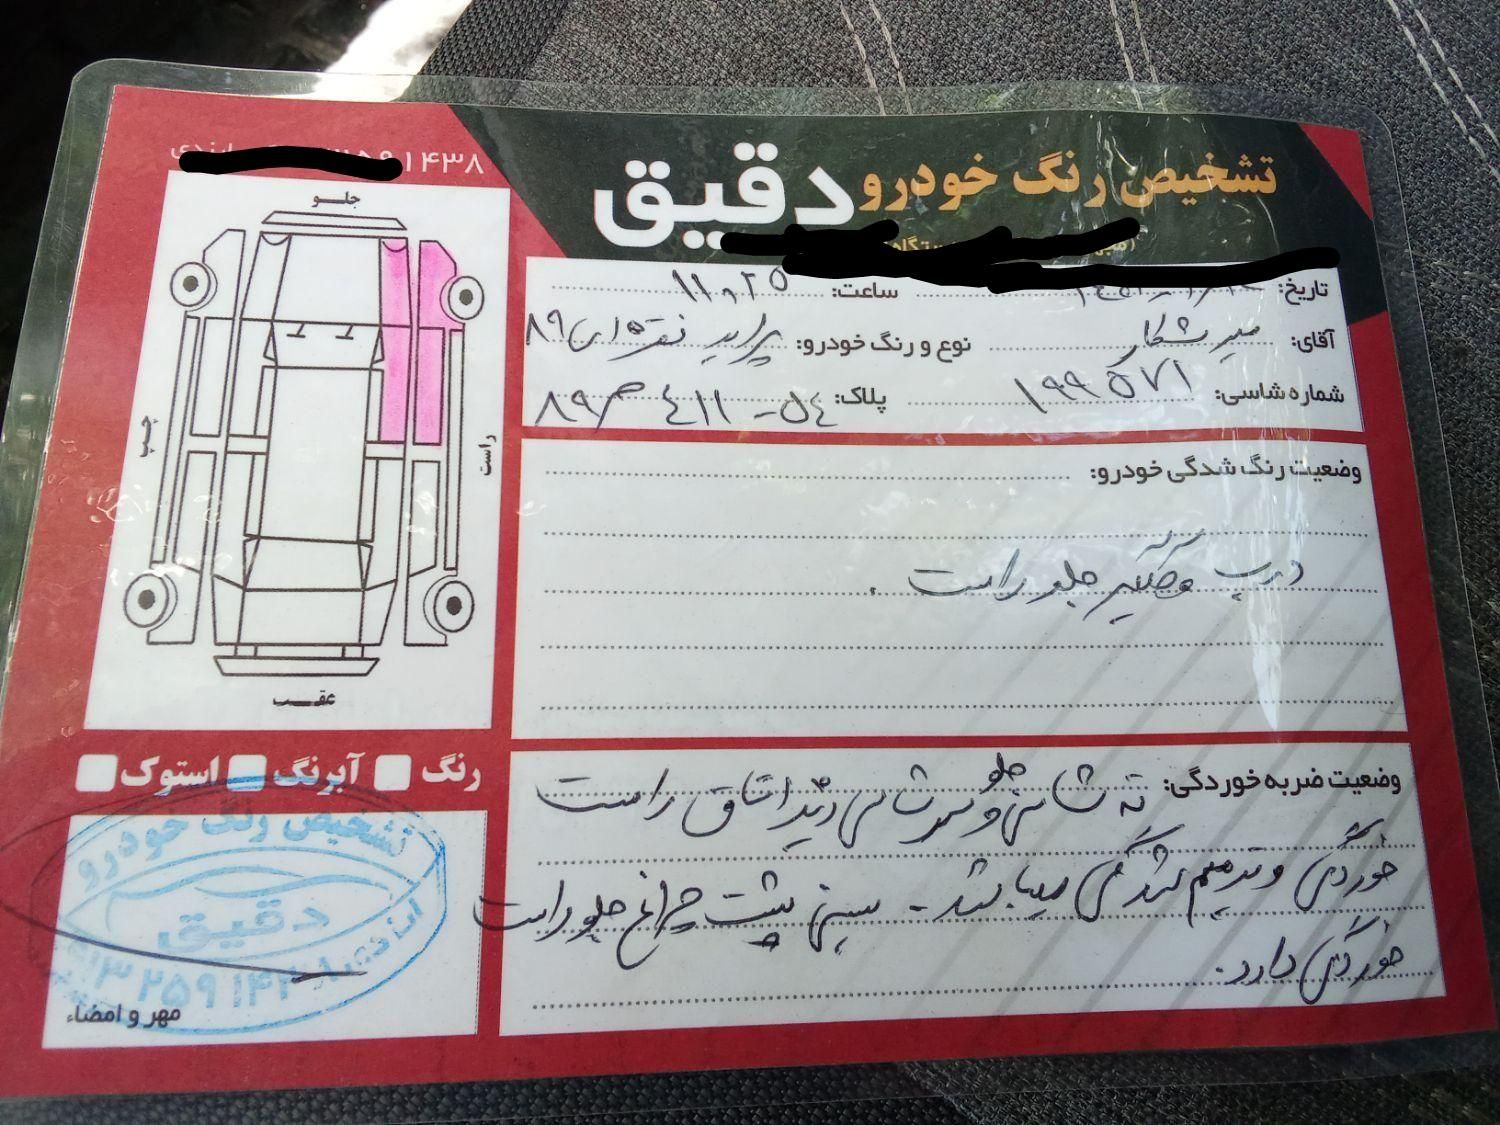 تشخیص رنگ خودرو دقیق
۱۴۳۸
تاریخ:
ساعت: ۱۱:۲۵
آقای: میرشکار
نوع و رنگ خودرو: پراید نقره ای ۸۹
شماره شاسی: ۱۹۹۵۷۱
پلاک: ۵۴ - ۴۱۱ م ۸۹
جلو
چپ
راست
عقب
وضعیت رنگ شدگی خودرو:
درب و گلگیر جلو راست.
رنگ
آبرنگ
استوک
وضعیت ضربه خوردگی: ته شاسی و سر شاسی جلو اتاق راست
خوردگی و ترمیم شدگی میباشد - سینی پشت چراغ جلو راست
خوردگی دارد.
تشخیص رنگ خودرو
دقیق
مهر و امضاء